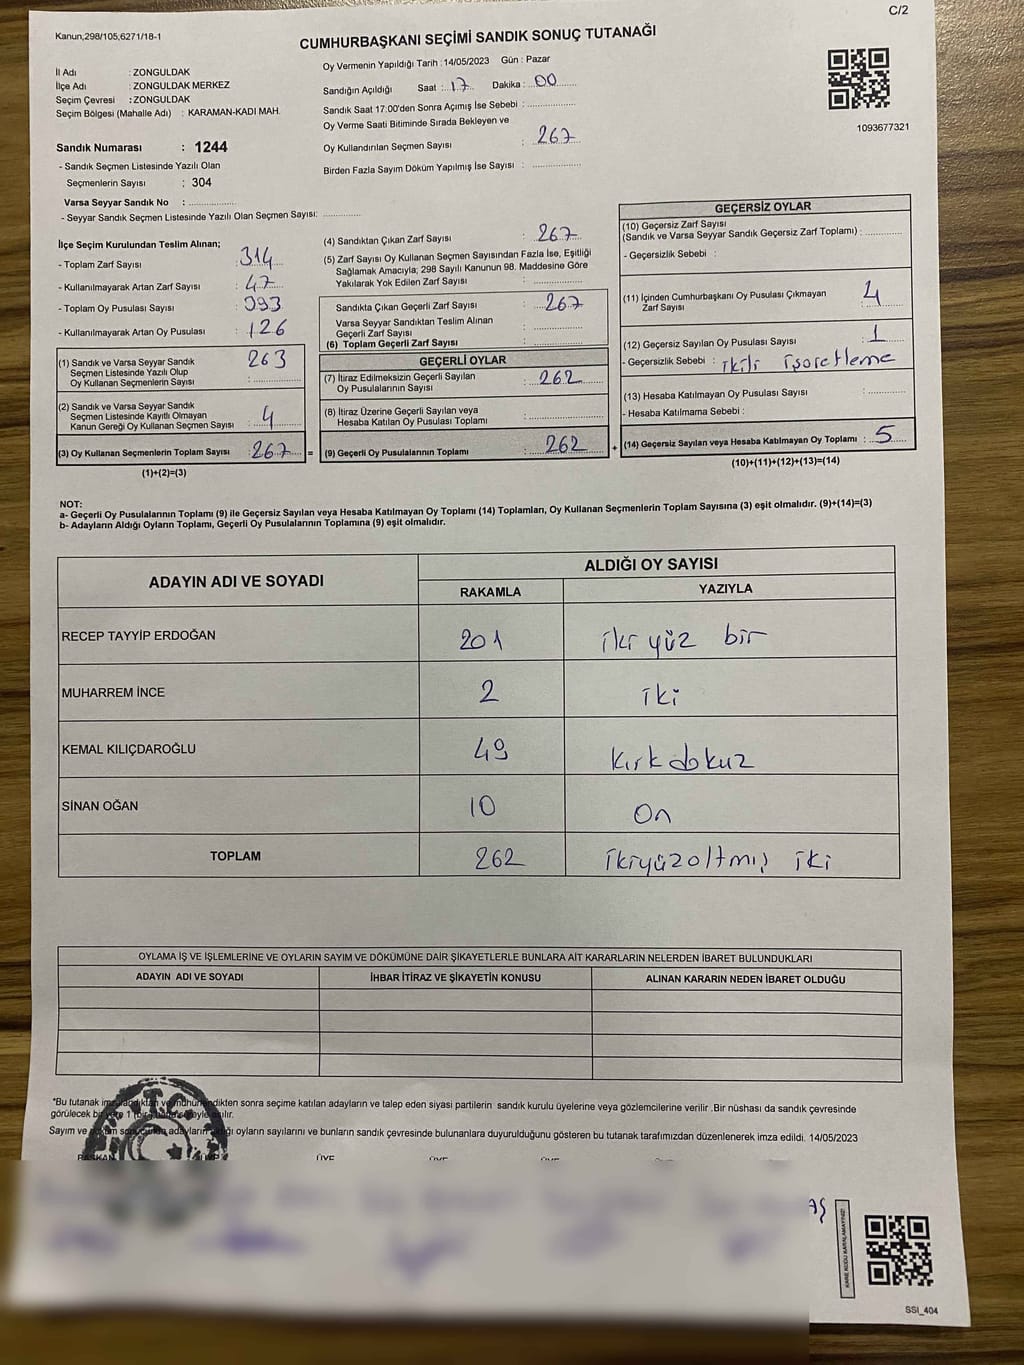 C/2
Kanun,298/105,6271/18-1
CUMHURBAŞKANI SEÇİMİ SANDIK SONUÇ TUTANAĞI
İl Adı : ZONGULDAK
İlçe Adı : ZONGULDAK MERKEZ
Seçim Çevresi : ZONGULDAK
Seçim Bölgesi (Mahalle Adı) : KARAMAN-KADI MAH.
Sandık Numarası : 1244
- Sandık Seçmen Listesinde Yazılı Olan
Seçmenlerin Sayısı : 304
Varsa Seyyar Sandık No :
- Seyyar Sandık Seçmen Listesinde Yazılı Olan Seçmen Sayısı:
Oy Vermenin Yapıldığı Tarih :14/05/2023 Gün : Pazar
Sandığın Açıldığı Saat : 17 Dakika : 00
Sandık Saat 17:00'den Sonra Açımış İse Sebebi :
Oy Verme Saati Bitiminde Sırada Bekleyen ve
Oy Kullandırılan Seçmen Sayısı : 267
Birden Fazla Sayım Döküm Yapılmış İse Sayısı :
1093677321
İlçe Seçim Kurulundan Teslim Alınan;
- Toplam Zarf Sayısı : 314
- Kullanılmayarak Artan Zarf Sayısı : 47
- Toplam Oy Pusulası Sayısı : 393
- Kullanılmayarak Artan Oy Pusulası : 126
(1) Sandık ve Varsa Seyyar Sandık
Seçmen Listesinde Yazılı Olup
Oy Kullanan Seçmenlerin Sayısı : 263
(2) Sandık ve Varsa Seyyar Sandık
Seçmen Listesinde Kayıtlı Olmayan
Kanun Gereği Oy Kullanan Seçmen Sayısı : 4
(3) Oy Kullanan Seçmenlerin Toplam Sayısı : 267 =
(1)+(2)=(3)
(4) Sandıktan Çıkan Zarf Sayısı : 267
(5) Zarf Sayısı Oy Kullanan Seçmen Sayısından Fazla İse, Eşitliği
Sağlamak Amacıyla; 298 Sayılı Kanunun 98. Maddesine Göre
Yakılarak Yok Edilen Zarf Sayısı :
Sandıkta Çıkan Geçerli Zarf Sayısı : 267
Varsa Seyyar Sandıktan Teslim Alınan
Geçerli Zarf Sayısı :
(6) Toplam Geçerli Zarf Sayısı :
GEÇERLİ OYLAR
(7) İtiraz Edilmeksizin Geçerli Sayılan
Oy Pusulalarının Sayısı : 262
(8) İtiraz Üzerine Geçerli Sayılan veya
Hesaba Katılan Oy Pusulası Toplamı :
(9) Geçerli Oy Pusulalarının Toplamı : 262 +
GEÇERSİZ OYLAR
(10) Geçersiz Zarf Sayısı
(Sandık ve Varsa Seyyar Sandık Geçersiz Zarf Toplamı) :
- Geçersizlik Sebebi :
(11) İçinden Cumhurbaşkanı Oy Pusulası Çıkmayan
Zarf Sayısı : 4
(12) Geçersiz Sayılan Oy Pusulası Sayısı : 1
- Geçersizlik Sebebi : ikili işaretleme
(13) Hesaba Katılmayan Oy Pusulası Sayısı :
- Hesaba Katılmama Sebebi :
(14) Geçersiz Sayılan veya Hesaba Katılmayan Oy Toplamı : 5
(10)+(11)+(12)+(13)=(14)
NOT:
a- Geçerli Oy Pusulalarının Toplamı (9) ile Geçersiz Sayılan veya Hesaba Katılmayan Oy Toplamı (14) Toplamları, Oy Kullanan Seçmenlerin Toplam Sayısına (3) eşit olmalıdır. (9)+(14)=(3)
b- Adayların Aldığı Oyların Toplamı, Geçerli Oy Pusulalarının Toplamına (9) eşit olmalıdır.
ADAYIN ADI VE SOYADI ALDIĞI OY SAYISI
RAKAMLA YAZIYLA
RECEP TAYYİP ERDOĞAN 201 iki yüz bir
MUHARREM İNCE 2 iki
KEMAL KILIÇDAROĞLU 49 kırk dokuz
SİNAN OĞAN 10 On
TOPLAM 262 ikiyüzaltmış iki
OYLAMA İŞ VE İŞLEMLERİNE VE OYLARIN SAYIM VE DÖKÜMÜNE DAİR ŞİKAYETLERLE BUNLARA AİT KARARLARIN NELERDEN İBARET BULUNDUKLARI
ADAYIN ADI VE SOYADI İHBAR İTİRAZ VE ŞİKAYETİN KONUSU ALINAN KARARIN NEDEN İBARET OLDUĞU
*Bu tutanak imzalandıktan ve mühürlendikten sonra seçime katılan adayların ve talep eden siyasi partilerin sandık kurulu üyelerine veya gözlemcilerine verilir .Bir nüshası da sandık çevresinde
görülecek bir yere asılır.
Sayım ve döküm sonucunda adayların aldığı oyların sayılarını ve bunların sandık çevresinde bulunanlara duyurulduğunu gösteren bu tutanak tarafımızdan düzenlenerek imza edildi. 14/05/2023
BAŞKAN ÜYE
KARE KODU KARALAMAYINIZ!
SSİ_404